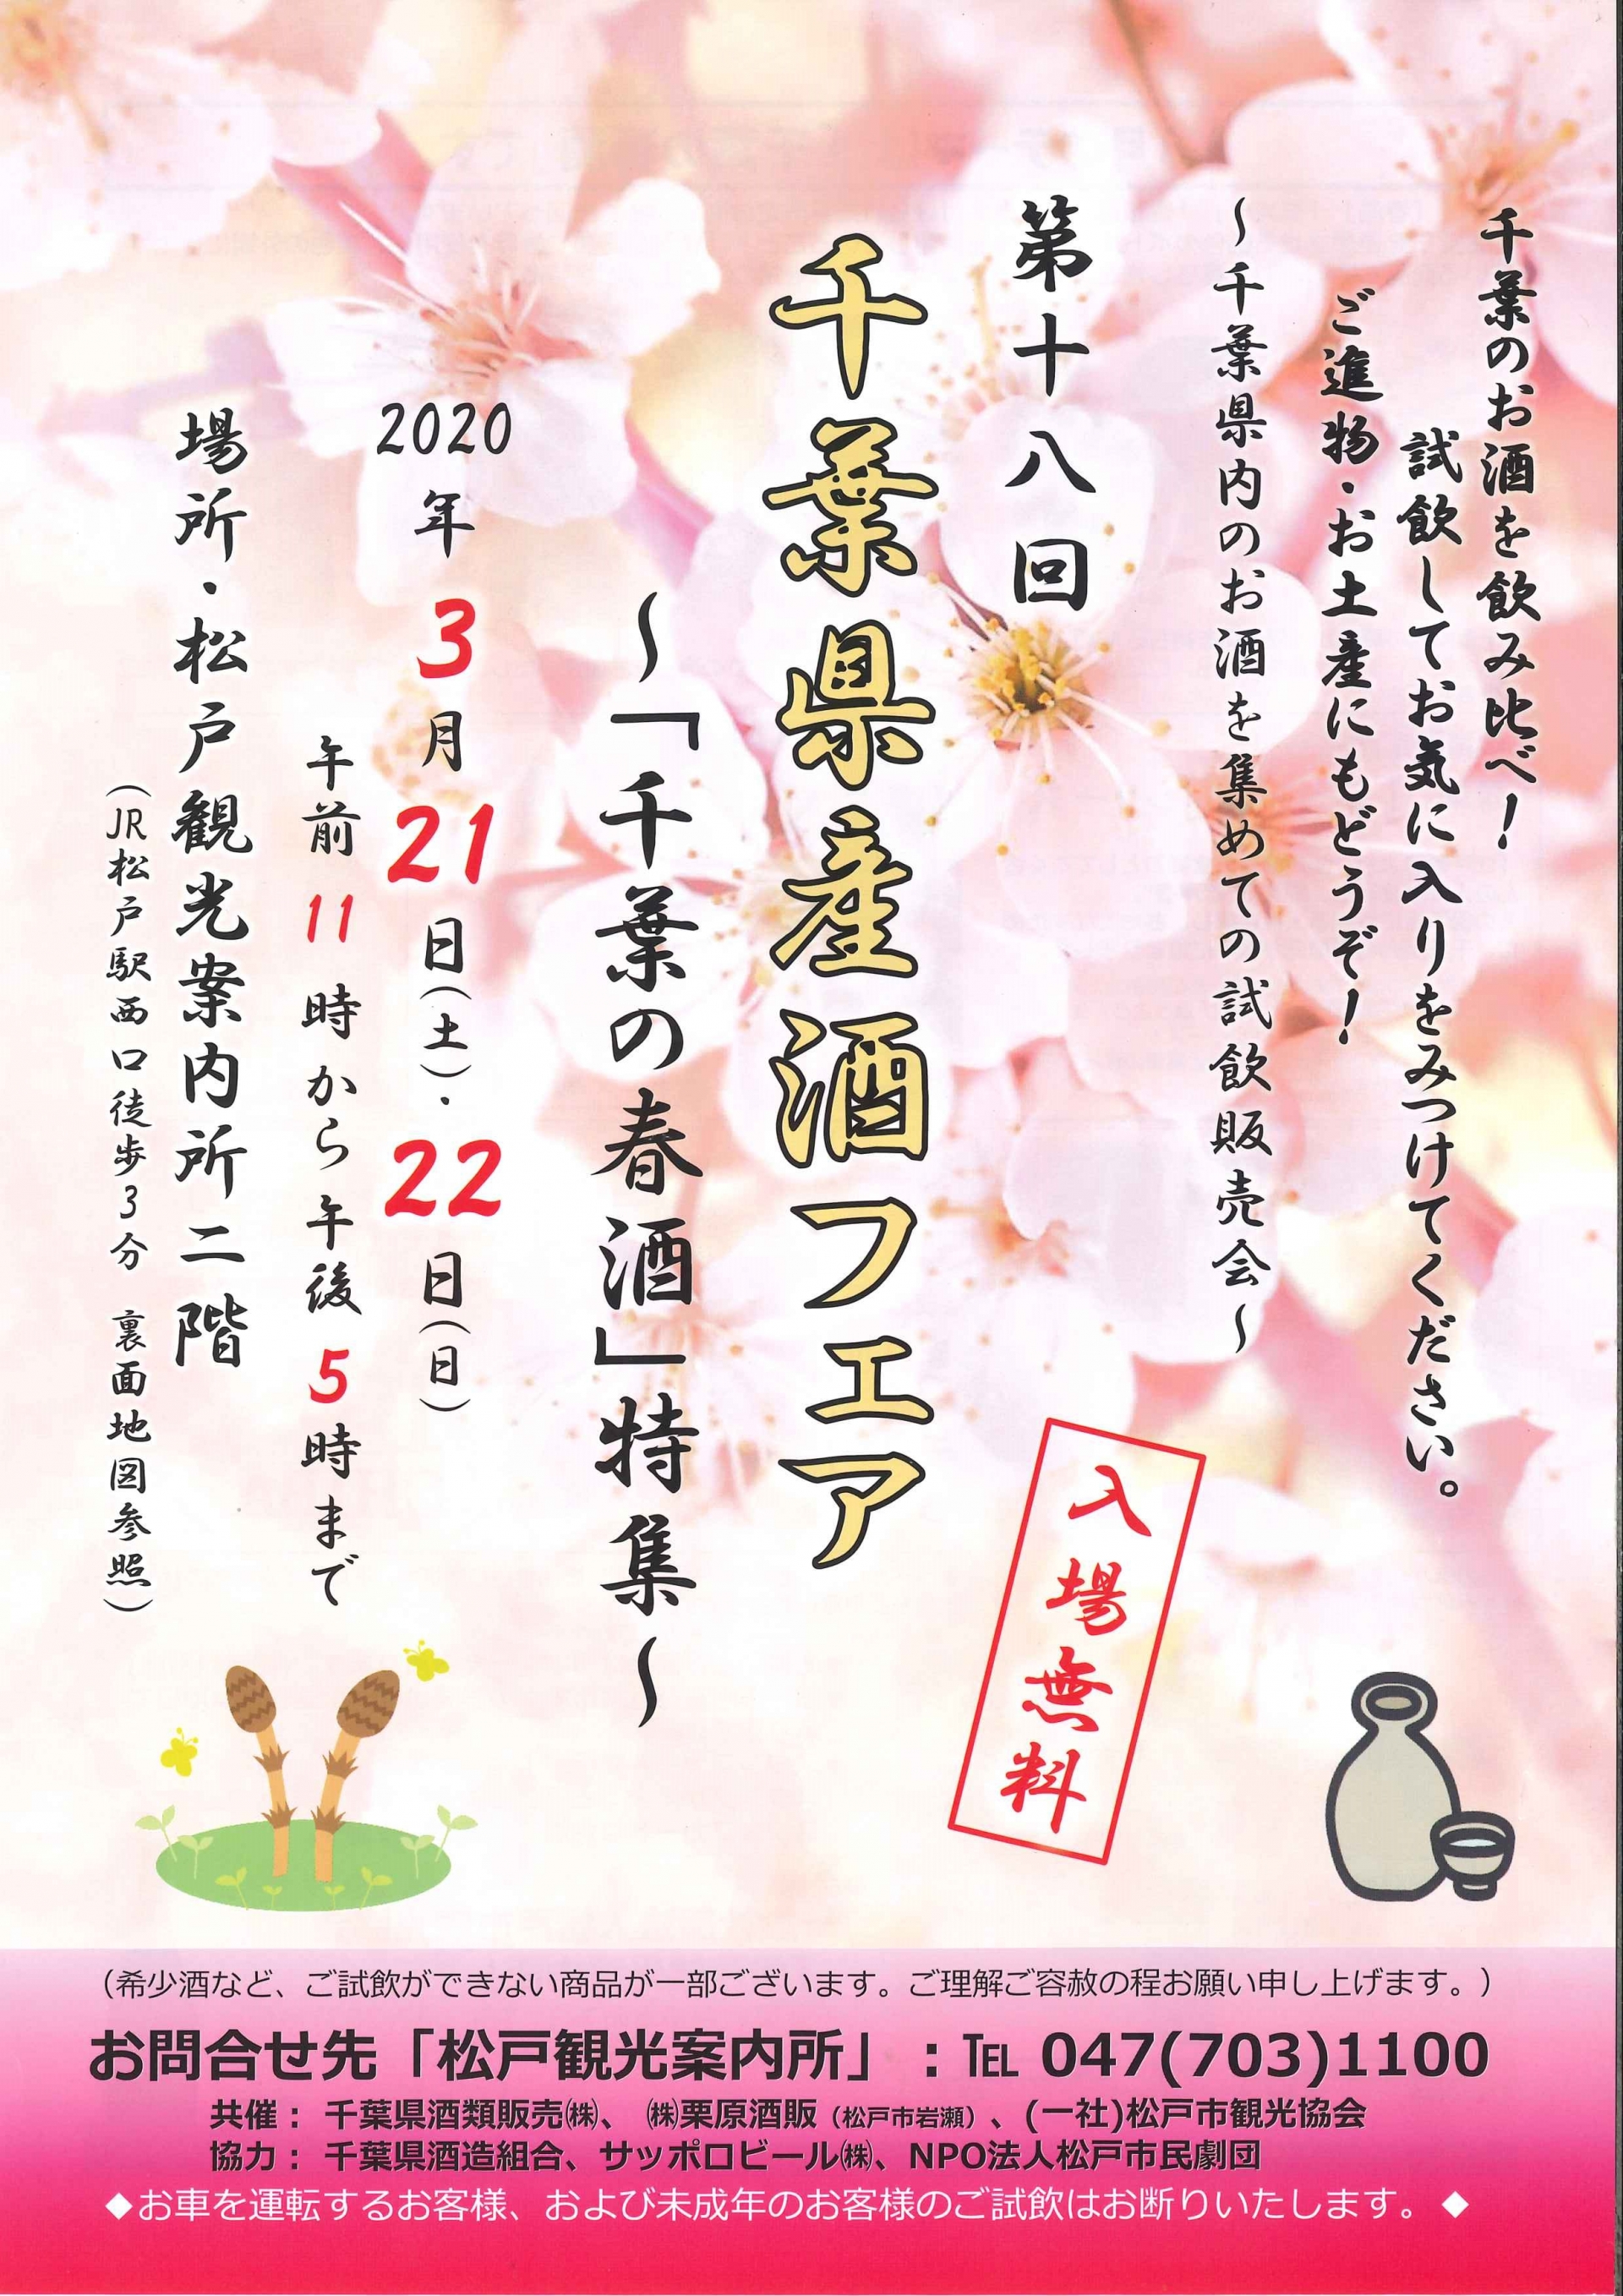 千葉のお酒を飲み比べ！
試飲してお気に入りをみつけてください。
ご進物・お土産にもどうぞ！
～千葉県内のお酒を集めての試飲販売会～
第十八回
千葉県産酒フェア
～「千葉の春酒」特集～
2020年3月21日(土)・22日(日)
午前11時から午後5時まで
場所・松戸観光案内所二階
(JR松戸駅西口徒歩3分　裏面地図参照)
入場無料
（希少酒など、ご試飲ができない商品が一部ございます。ご理解ご容赦の程お願い申し上げます。）
お問合せ先「松戸観光案内所」：℡ 047(703)1100
共催： 千葉県酒類販売㈱、 ㈱栗原酒販（松戸市岩瀬）、(一社)松戸市観光協会
協力： 千葉県酒造組合、サッポロビール㈱、NPO法人松戸市民劇団
◆お車を運転するお客様、および未成年のお客様のご試飲はお断りいたします。◆